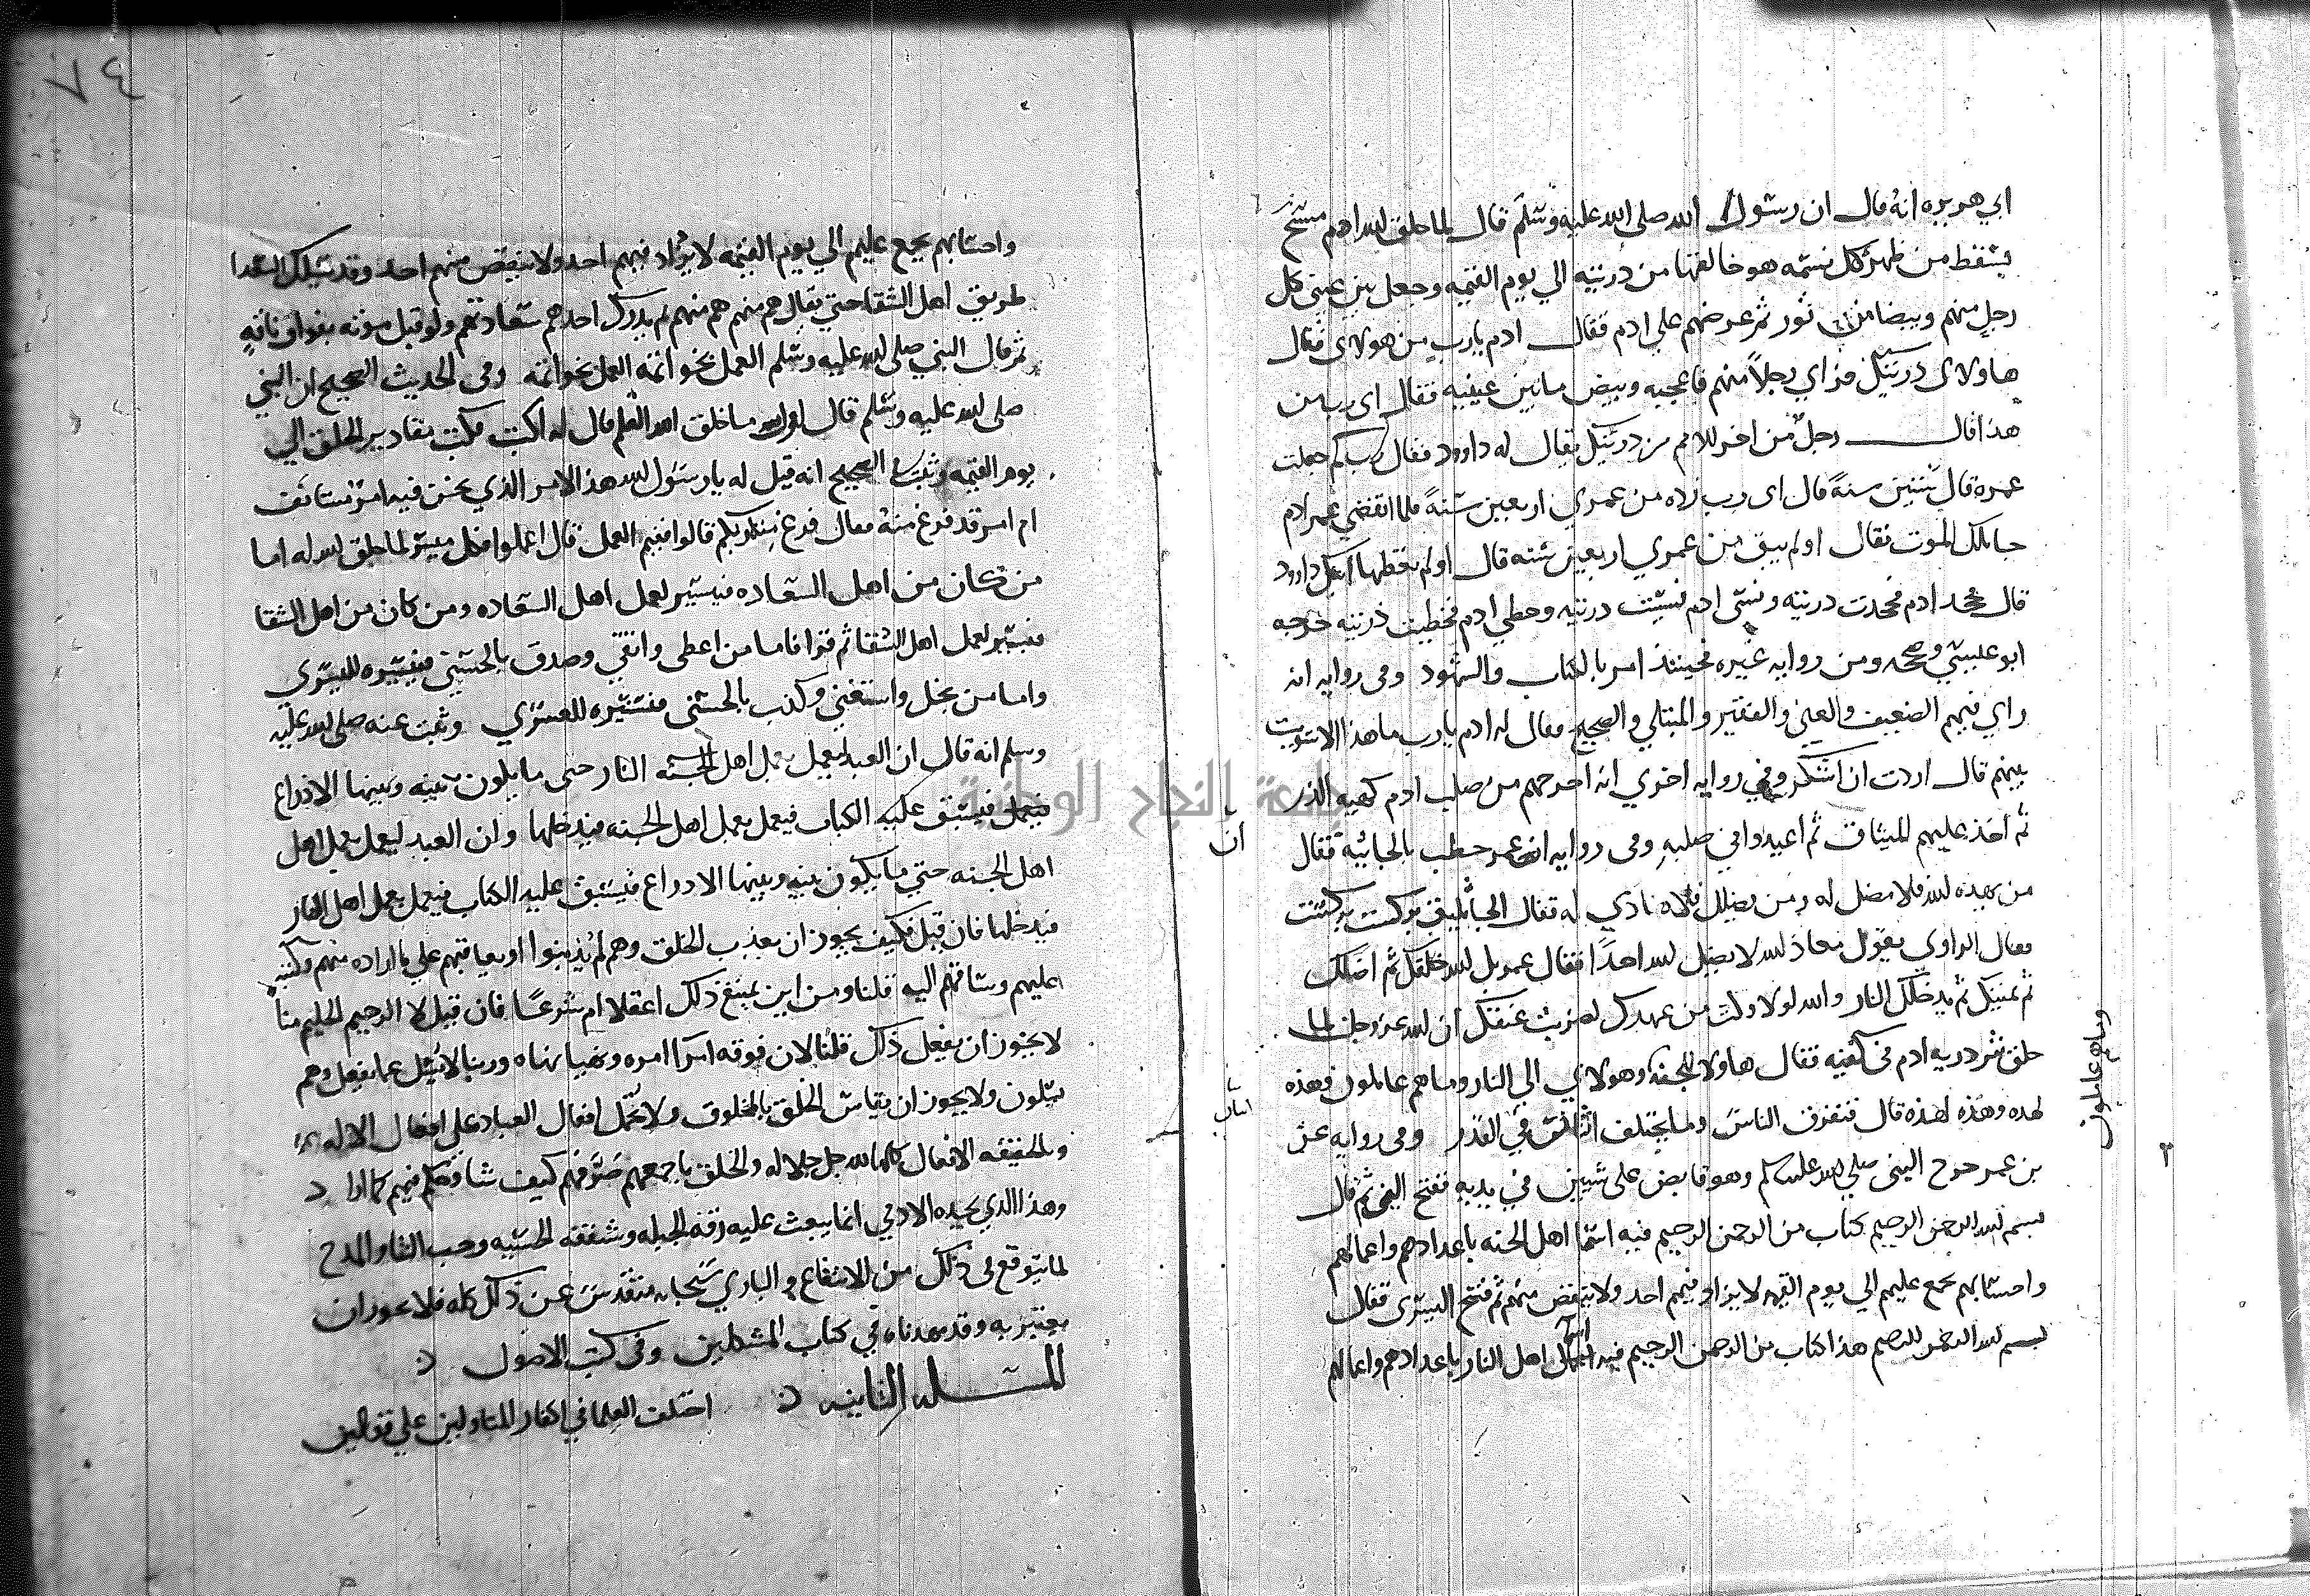 ابي هريره انه قال ان رسول الله صلى الله عليه وسلم قال لما خلق الله ادم مسح
فسقط من ظهره كل نسمه هو خالقها من دريته الي يوم القيمه وجعل بين عيني كل
رجل منهم وبيضا من نور ثم عرضهم علي ادم فقال ادم يارب من هولاي فقال
هاولاى دريتك فراي رجلاً منهم فاعجبه وبيض مابين عينيه فقال اى رب من
هذا قال رجل من اخر الامم من دريتك يقال له داوود فقال رب كم جعلت
عمره قال ستين سنةً قال اى رب زاده من عمري اربعين سنةً فلما انقضي عمر ادم
جا ملك الموت فقال اولم يبق من عمري اربعين سنه قال اولم تعطها ابنك داوود
قال فجحد ادم فجحدت دريته ونسى ادم فنسيت دريته وخطي ادم فخطيت ذريته خرجه
ابو عيسي وصححه ومن روايه غيره فحينئذ امر بالكتاب والشهود وفى روايه انه
راي فيهم الضعيف والغني والفقير والمبتلي والصحيح فقال له ادم يارب ما هذا الا سويت
بينهم قال اردت ان اشكر وفي روايه اخري انه اخرجهم من صلب ادم كهيه الذر
ثم اخذ عليهم الميثاق ثم اعيدوا في صلبهِ وفى روايه ان عمر خطب بالجابيه فقال
ان
من يهده الله فلا مضل له ومن يضلل فلا هادي له فقال الجاثليق بركست بركست
فقال الراوى يقول معاذ الله لا يضل الله احدًا فقال عمر بل الله خلقك ثم اضلك
ثم يميتك ثم يدخلك النار والله لولا ولث من عهدك لضربت عنقك ان الله عز وجل لما
خلق نثر دريه ادم فى كفيه فقال هاولا للجنه وهولاي الي النار وما هم عاملون وهذه
وما هم عاملون
لهده وهذه لهذه قال فتفرق الناس وما يختلف اثنان في القدر وفى روايه عن
اثنان
بن عمر خرج النبى صلي الله عليه وسلم وهو قابض على شيين في يديه ففتح اليمنى ثم قال
بسم الله الرحمن الرحيم كتاب من الرحمن الرحيم فيه اسما اهل الجنه باعدادهم واعمالهم
واحسابهم يجمع عليهم الي يوم القيمه لا يزاد فيهم احد ولا ينقص منهم ثم فتح اليسرى فقال
بسم الله الرحمن الرحيم هذا كتاب من الرحمن الرحيم فيه اسما اهل النار باعدادهم واعمالهم
٢
٧٤
واحسابهم يجمع عليهم الي يوم القيمه لا يزاد فيهم احد ولا ينقص منهم احد وقد يسلك السعدا
طريق اهل الشقا حتي يقال هم منهم هم منهم ثم يدرك احدهم سعادتهم ولو قبل موته بفواق ناقهٍ
ثم قال النبي صلي الله عليه وسلم العمل بخواتمه العمل بخواتمه وفى الحديث الصحيح ان النبي
صلى الله عليه وسلم قال اول ما خلق الله القلم قال له اكتب فكتب مقادير الخلق الي
يوم القيمه وثبت في الصحيح انه قيل له يا رسول الله هذا الامر الذي نحن فيه امر مستانف
ام امر قد فرغ منه فقال فرغ منه ربكم قالوا ففيم العمل قال اعملوا فكل ميسر لما خلق الله له اما
من كان من اهل السعاده فييسر لعمل اهل السعاده ومن كان من اهل الشقا
فييسر لعمل اهل الشقا ثم قرا فاما من اعطى واتقى وصدق بالحسني فسنيسره لليسري
واما من بخل واستغني وكذب بالحسنى فسنيسره للعسري وثبت عنه صلى الله عليه
وسلم انه قال ان العبد ليعمل بعمل اهل الجنه النار حتى ما يكون بينه وبينها الا ذراع
فيعمل فيسبق عليه الكتاب فيعمل بعمل اهل الجنه فيدخلها وان العبد ليعمل بعمل اهل
اهل الجنه حتي ما يكون بينه وبينها الا دراع فيسبق عليه الكتاب فيعمل بعمل اهل النار
فيدخلها فان قيل فكيف يجوز ان يعذب الخلق وهم لم يذنبوا او يعاقبهم علي ما اراده منهم وكتبه
عليهم وساقهم اليه قلنا ومن اين يمتنع ذلك اعقلا ام شرعًا فان قيل لان الرحيم الحليم منا
لا يجوز ان يفعل ذلك قلنا لان فوقه امرا امره ونهيا نهاه وربنا لا يسئل عما يفعل وهم
يسلون ولا يجوز ان يقاس الخلق بالمخلوق ولا تحمل افعال العباد علي افعال الاله
وبالحقيقه الافعال كلها لله جل جلاله والخلق باجمعهم صرفهم كيف شا وحكم فيهم كما
وهذا الذي يجده الادمي انما يبعث عليه رقه الجبله وشفقه الجنسيه وحب الثنا والمدح
لما يتوقع فى ذلك من الانتفاع والباري سبحانه متقدس عن ذلك كله فلا يجوز ان
يعتبر به وقد مهدناه في كتاب المشكلين وفى كتب الاصول
المسله الثانيه اختلف العلما في اكفار المتاولين علي قولين
جامعة النجاح الوطنية